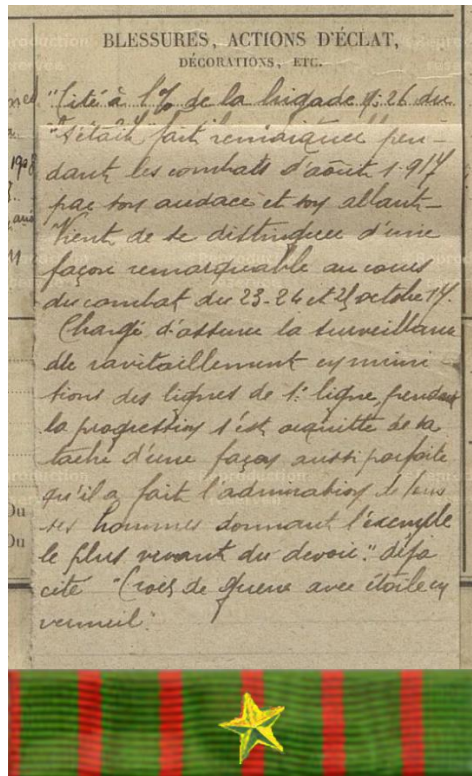 BLESSURES, ACTIONS D'ÉCLAT,
DÉCORATIONS, ETC.
"Cité à l'% de la brigade n: 26 du
"S'était fait remarquer pen-
dant les combats d'août 1917
par son audace et son allant-
Vient de se distinguer d'une
façon remarquable au cours
du combat du 23-24 et 25 octobre 17.
Chargé d'assurer la surveillance
de ravitaillement en muni
tions des lignes de 1: ligne, pendant
la progression s'est acquitté de sa
tache d'une façon aussi parfaite
qu'il a fait l'admiration de tous
ses hommes donnant l'exemple
le plus vivant du devoir." déjà
cité "Croix de guerre avec étoile en
vermeil.